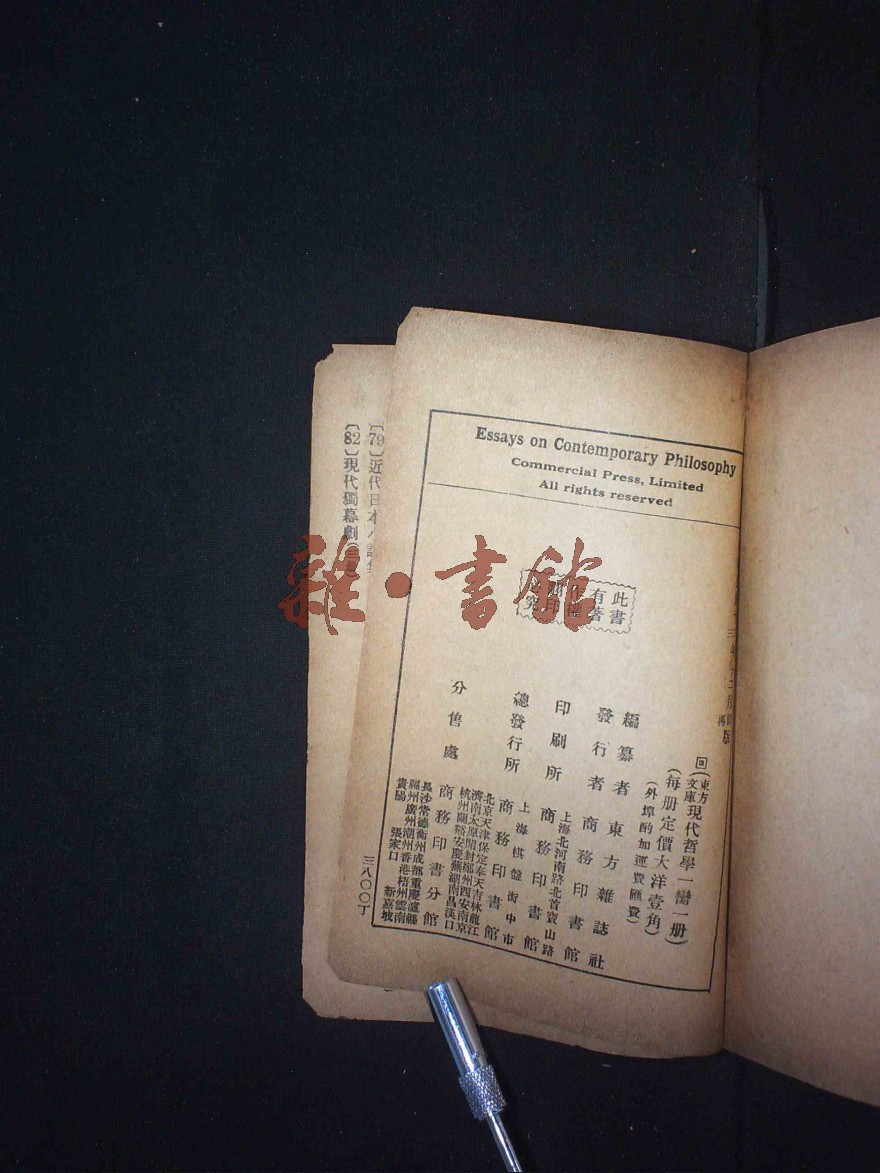 Essays on Contemporary Philosophy
Commercial Press, Limited
All rights reserved
此書
有著
印
究
再版
回(東方文庫)現代哲學一臠一册)
(每册定價大洋壹角)
(外埠酌加運費匯費)
編纂者 東方雜誌社
發行者 商務印書館
上海北河南路北首寶山路
印刷所 商務印書館
上海棋盤街中市
總發行所 商務印書館
分售處 商務印書分館
北京天津保定奉天吉林龍江
濟南太原開封鄭州西安南京
杭州蘭谿安慶蕪湖南昌漢口
長沙常德衡州成都重慶瀘縣
福州廣州潮州香港梧州雲南
貴陽 張家口 新嘉坡
〔79〕近代日本小說集
〔82〕現代獨幕劇(三
三八〇〇丁
雜·書館